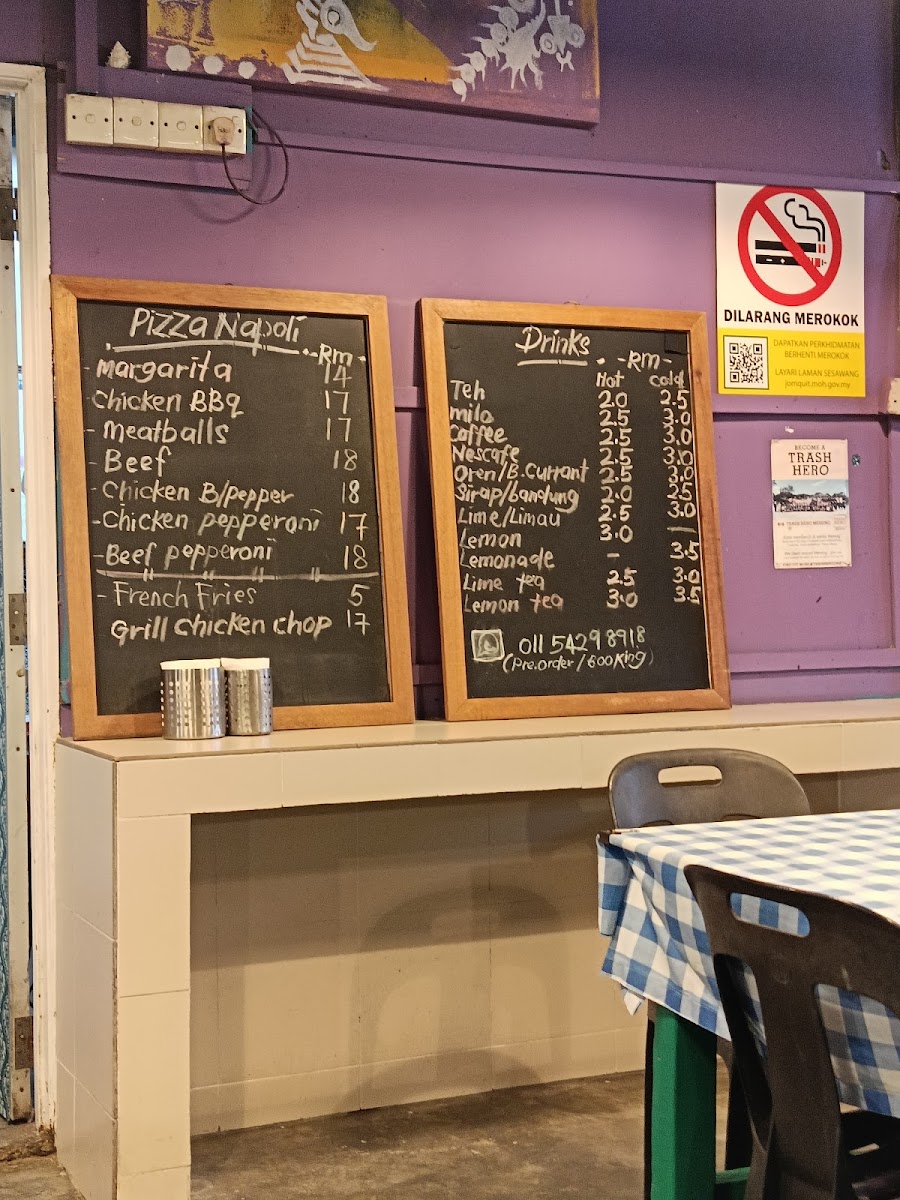 Pizza Napoli
-Rm-
- Margarita 14
- Chicken BBq 17
- Meatballs 17
- Beef 18
- Chicken B/pepper 18
- Chicken pepperoni 17
- Beef pepperoni 18
- French Fries 5
Grill chicken chop 17
Drinks
-Rm-
Hot cold
Teh 2.0 2.5
milo 2.5 3.0
Coffee 2.5 3.0
Nescafe 2.5 3.0
Oren/B.currant 2.5 3.0
Sirap/bandung 2.0 2.5
Lime/Limau 2.5 3.0
Lemon 3.0 —
Lemonade - 3.5
Lime tea 2.5 3.0
Lemon tea 3.0 3.5
011 54298918
(Pre.order/booking)
DILARANG MEROKOK
DAPATKAN PERKHIDMATAN
BERHENTI MEROKOK
LAYARI LAMAN SESAWANG
jomquit.moh.gov.my
BECOME A
TRASH
HERO